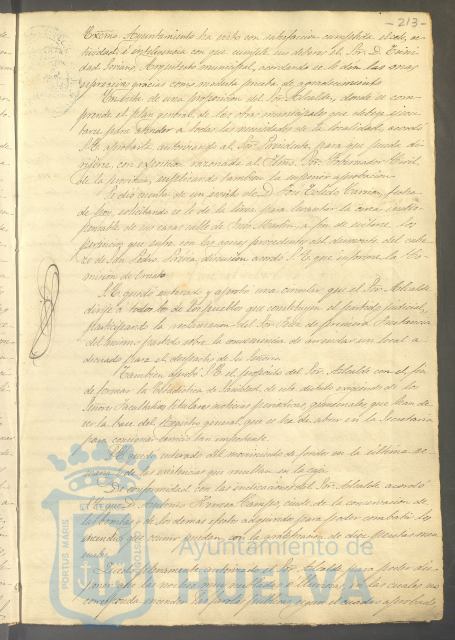 - 213 -
Excmo. Ayuntamiento ha visto con satisfaccion cumplida el celo, ac-
tividad é inteligencia con que cumple sus deberes el Sor. D. Trini-
dad Soriano, Arquitecto municipal, acordando se le den las mas
expresivas gracias como modesta prueba de agradecimiento.
En vista de una proposicion del Sor. Alcalde, donde se com-
prende el plan general de las obras municipales que deben ejecu-
tarse para atender á todas las necesidades de la localidad, acordó
S.E. aprobarla autorizando al Sor. Presidente, para que pueda di-
rigirse, con esposicion razonada al Iltmo. Sor. Gobernador Civil
de la provincia, suplicando tambien la superior aprobacion.
Se dió cuenta de un escrito de D. José Toledo
solicitando se le dé la linea para levantar la cerca
de su casa calle de San Martin, á fin de evitarse los
perjuicios que sufre con las aguas procedentes del derrumbe del cabe-
zo de Sn. Pedro. Previa discusion acordó S.E. que informe la Co-
mision de Ornato.
S.E. quedó enterado y aprobó una circular que el Sor. Alcalde
dirije á todos los de los pueblos que constituyen el partido judicial,
participando la reclamacion del Sor. Juez de primera Instancia
del mismo partido sobre la conveniencia de arrendar un local a-
decuado para el despacho de la Señoria.
Tambien aprobó S.E. el propósito del Sor. Alcalde con el fin
de formar la Estadística de Sanidad de este distrito exigiendo de los
Señores Facultativos titulares noticias periodicas, quincenales que han de
ser la base del Registro general, que se ha de abrir en la Secretaria
para conseguir servicio tan importante.
S.E. quedó enterado del movimiento de fondos en la última se-
mana y de las existencias que resultan en la caja.
De conformidad con las indicaciones del Sor. Alcalde acordó
S.E. que D. Antonio Herrera Campos, cuide de la conservacion de
las bombas y de los demas efectos adquiridos para poder combatir los
incendios que ocurrir puedan, con la gratificacion de diez pesetas men-
suales.
Quedó plenamente autorizado el Sor. Alcalde para poder dis-
poner de los medios mas
corresponda encender los faroles públicos
Ayuntamiento de
HUELVA
PORTUS MARIS
CUSTODIA